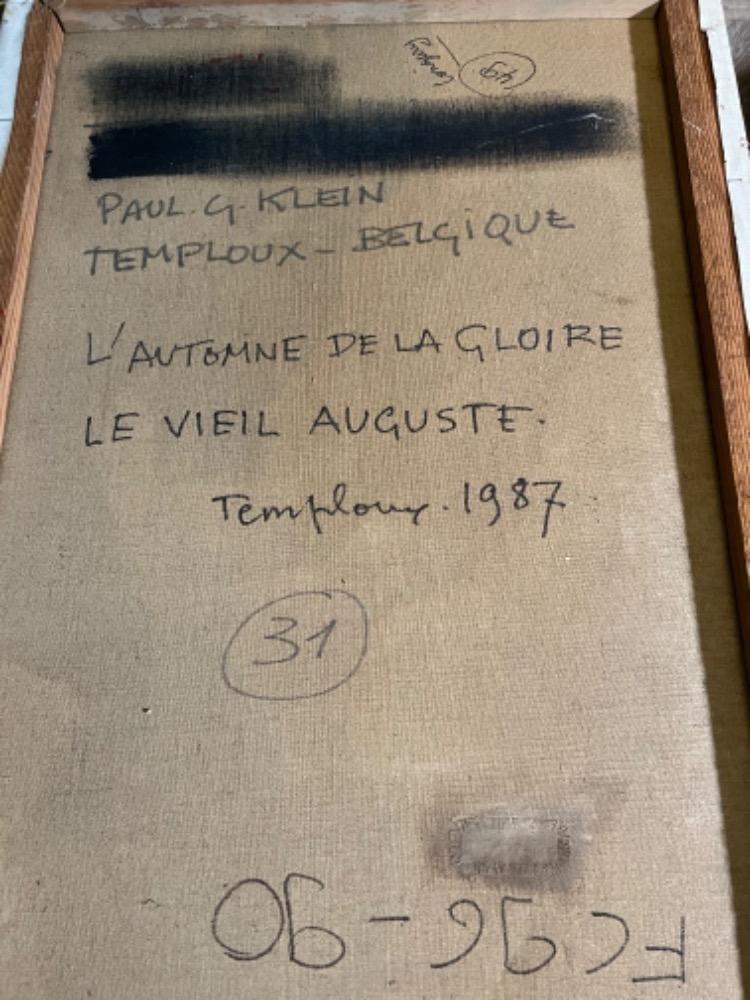 49
PAUL. G. KLEIN
TEMPLOUX - BELGIQUE
L'AUTOMNE DE LA GLOIRE
LE VIEIL AUGUSTE.
Temploux. 1987
31